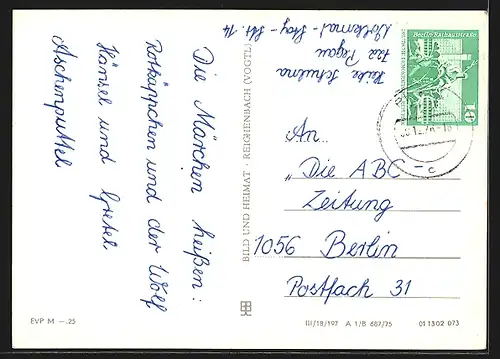 Die Märchen heißen:
Rotkäppchen und der Wolf
Hänsel und Gretel
Aschenputtel
EVP M —.25
BILD UND HEIMAT · REICHENBACH (VOGTL
722 Pegau
Str. 14
Berlin Rathausstraße
10
An
„Die ABC-
Zeitung
1056 Berlin
Postfach 31
III/18/197 A 1/B 687/75 01 1302 073